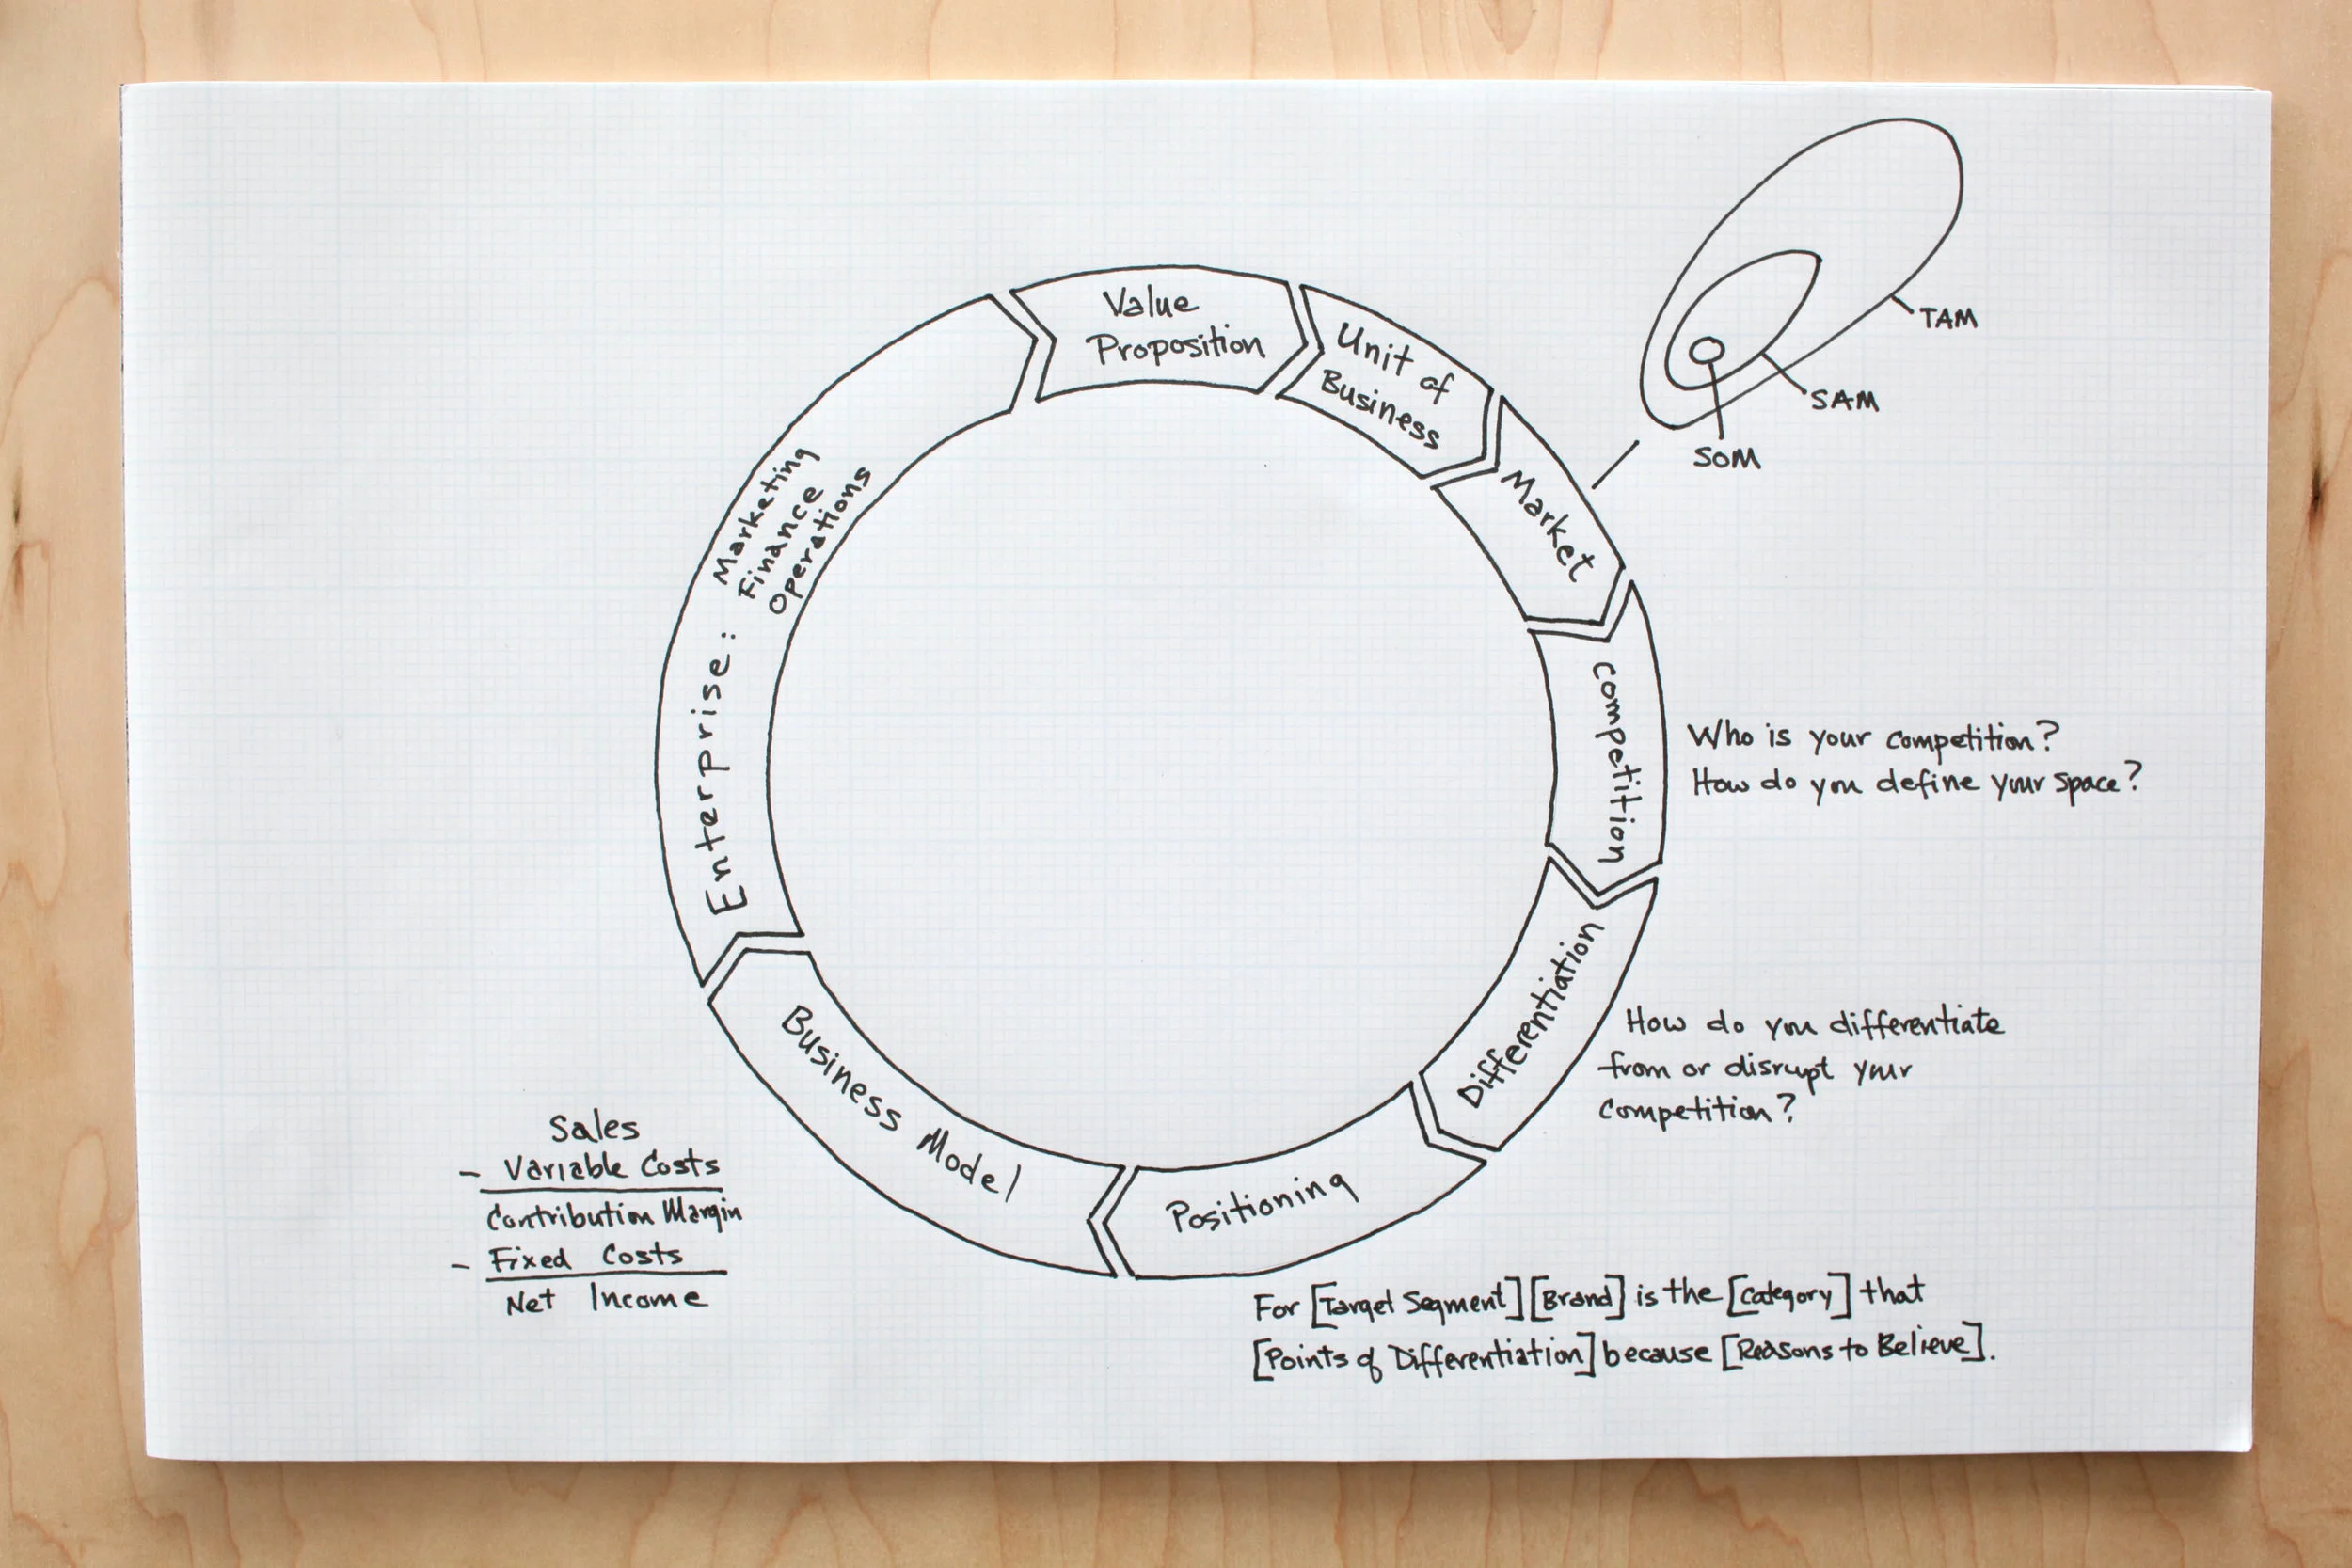 Value
Proposition
Unit of
Business
Market
TAM
SAM
SOM
Competition
Who is your competition?
How do you define your space?
Differentiation
How do you differentiate
from or disrupt your
competition?
Positioning
For [Target Segment] [Brand] is the [Category] that
[Points of Differentiation] because [Reasons to Believe].
Business Model
Sales
- Variable Costs
Contribution Margin
- Fixed Costs
Net Income
Enterprise:
Marketing
Finance
Operations